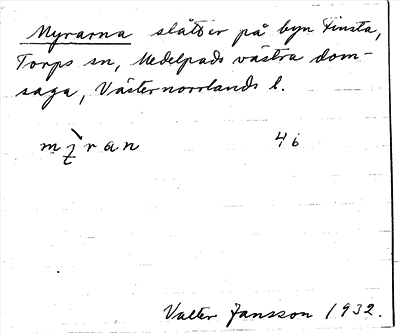 Myrarna slåtter på byn Finsta,
Torps sn, Medelpads västra dom-
saga, Västernorrlands l.
46
Valter Jansson 1932.